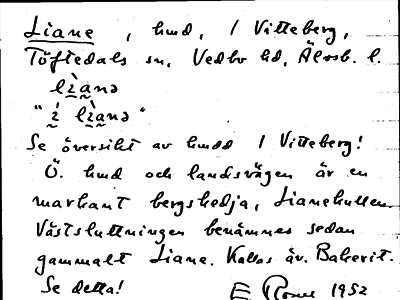 Liane, hmd, 1 Vitteberg,
Töftedals sn, Vedbo hd, Älvsb. l.
lìanə
"í lìanə"
Se översikt av hmdd 1 Vitteberg!
Ö. hmd och landsvägen är en
markant bergskedja, Lianekullen.
Västsluttningen benämnes sedan
gammalt Liane. Kallas äv. Bakerit.
Se detta!
1952